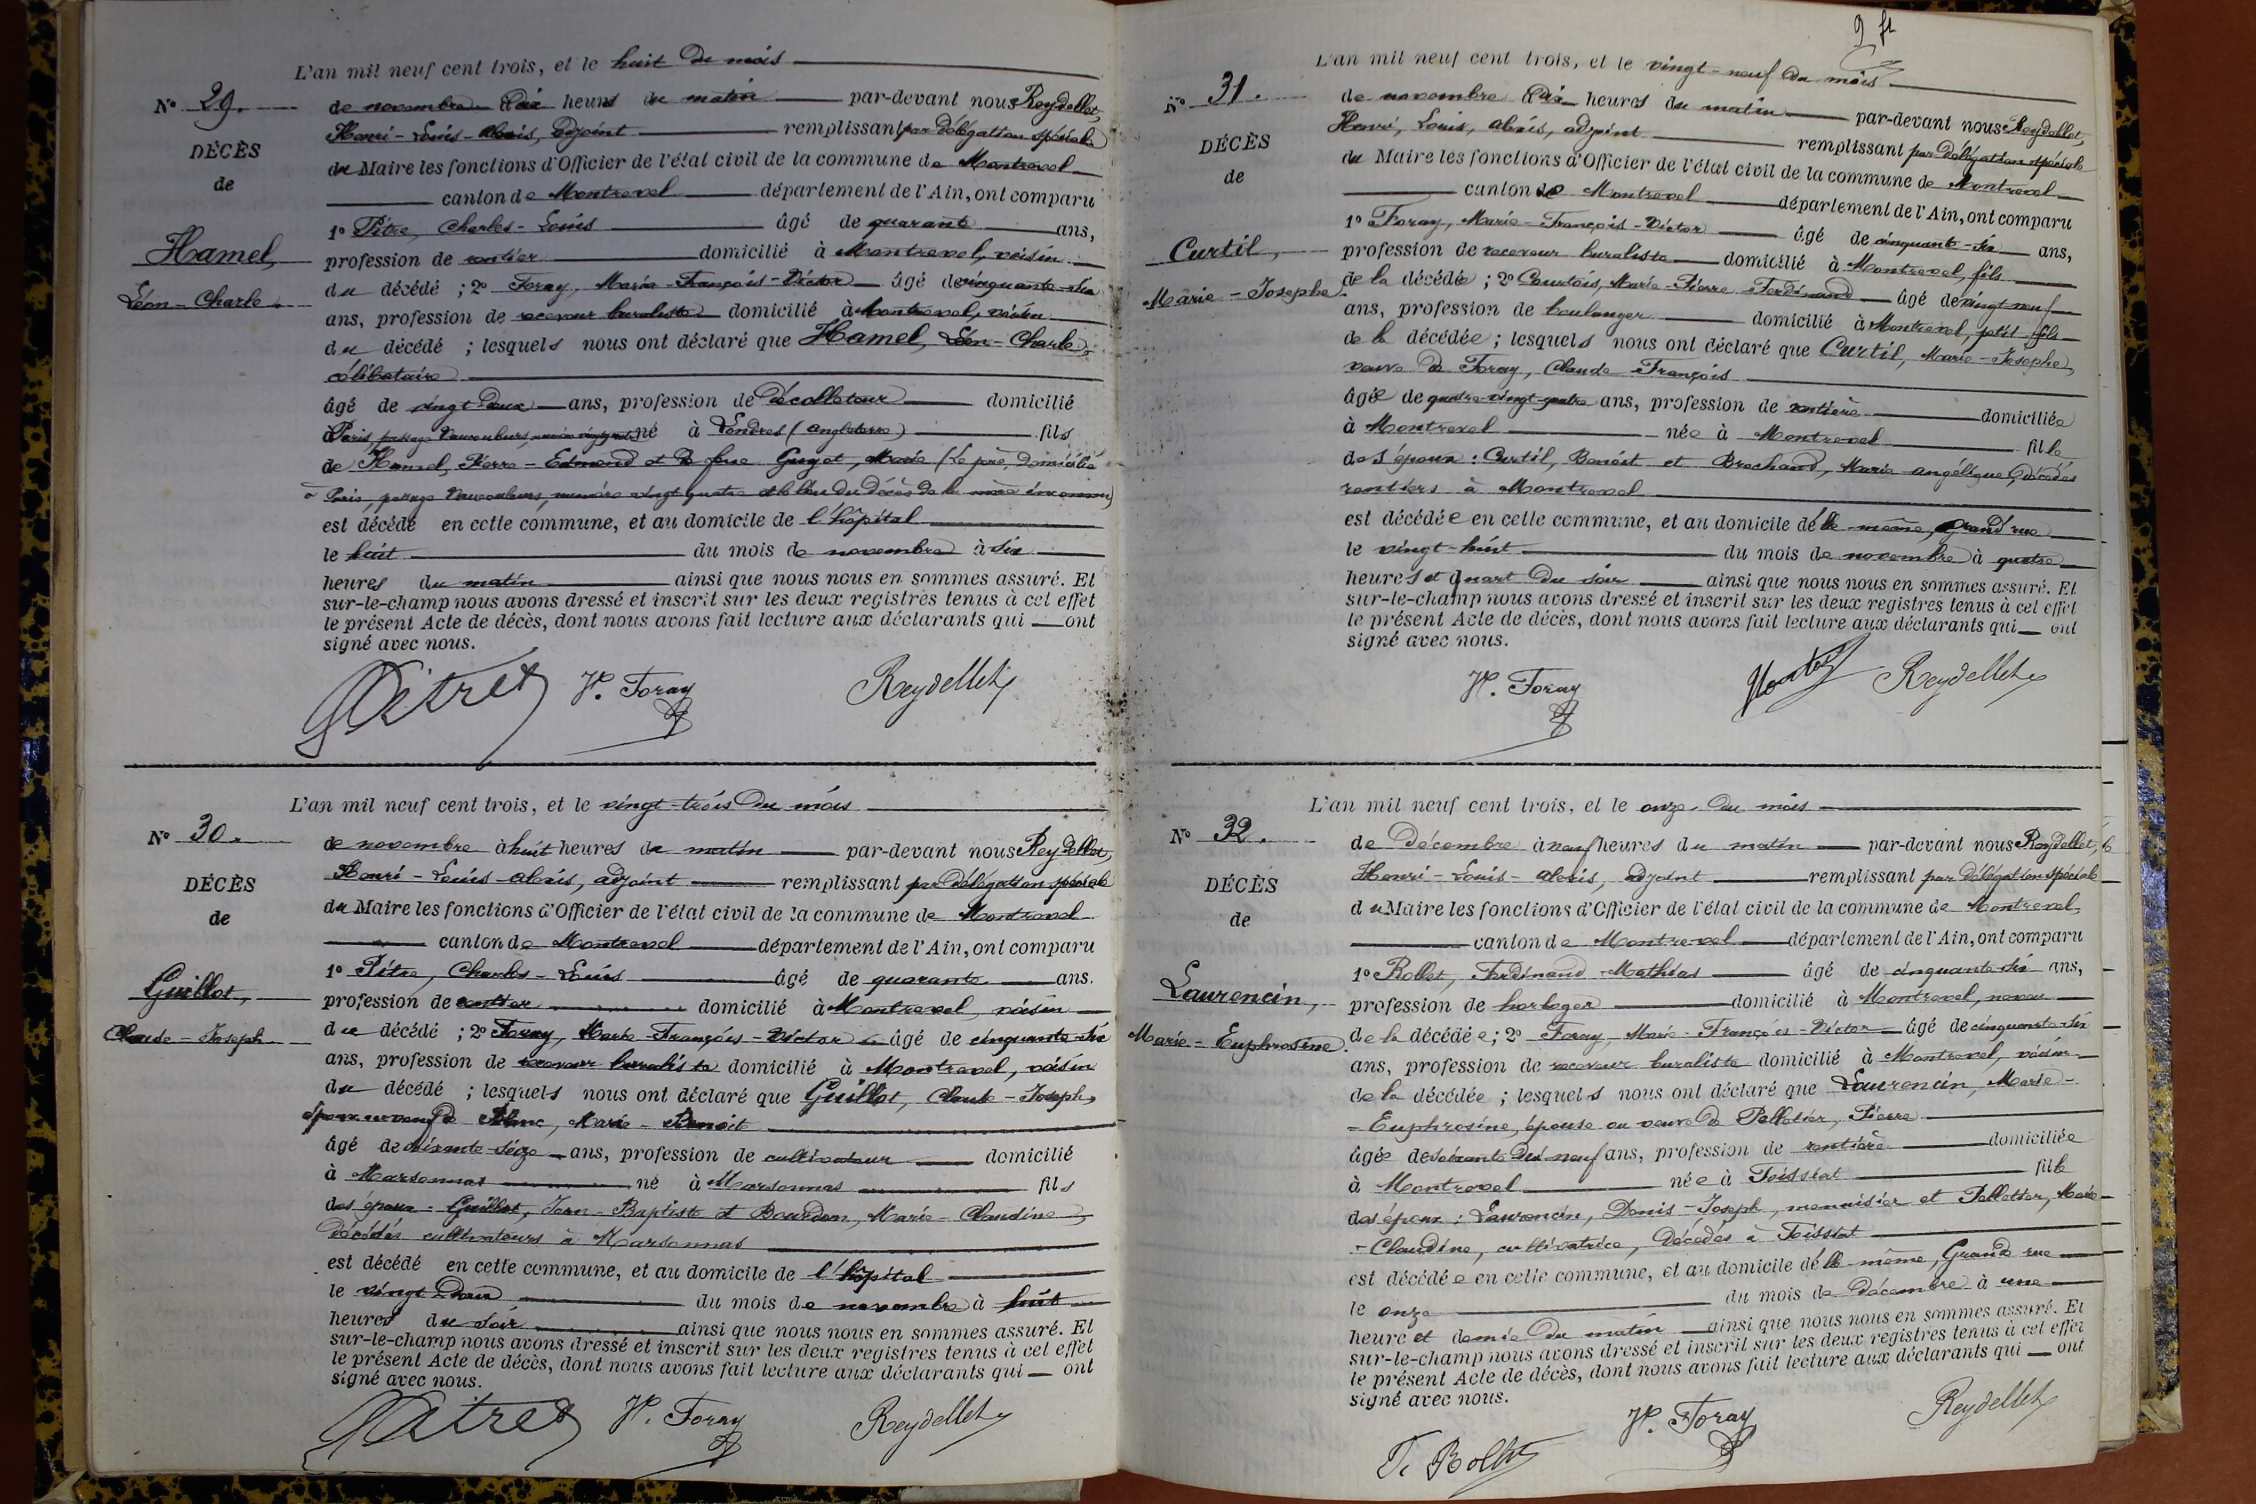 L'an mil neuf cent trois, et le huit du mois
N° 29.
de novembre à dix heures du matin par-devant nous Reydellet,
Henri-Louis-Alexis, adjoint remplissant par délégation spéciale
DÉCÈS
du Maire les fonctions d'Officier de l'état civil de la commune de Montrevel
de
canton de Montrevel département de l'Ain, ont comparu
1° Pitre, Charles-Louis âgé de quarante ans,
Hamel,
profession de rentier domicilié à Montrevel, voisin
Léon-Charle.
du décédé ; 2° Foray, Marie-François-Victor âgé de cinquante-six
ans, profession de receveur buraliste domicilié à Montrevel, voisin
du décédé ; lesquels nous ont déclaré que Hamel, Léon-Charle,
célibataire
âgé de vingt-deux ans, profession de décolleteur domicilié
à Paris, passage Vaucouleurs, né à Londres (Angleterre) fils
de Hamel, Pierre-Edmond et de feue Guyot, Marie (Le père, domicilié
à Paris, passage Vaucouleurs, numéro vingt quatre et le lieu du décès de la mère inconnu)
est décédé en cette commune, et au domicile de l'hôpital
le huit du mois de novembre à six
heures du matin ainsi que nous nous en sommes assuré. Et
sur-le-champ nous avons dressé et inscrit sur les deux registres tenus à cet effet
le présent Acte de décès, dont nous avons fait lecture aux déclarants qui ont
signé avec nous.
Pitre V. Foray Reydellet
L'an mil neuf cent trois, et le vingt-trois du mois
N° 30.
de novembre à huit heures du matin par-devant nous Reydellet,
Henri-Louis-Alexis, adjoint remplissant par délégation spéciale
DÉCÈS
du Maire les fonctions d'Officier de l'état civil de la commune de Montrevel
de
canton de Montrevel département de l'Ain, ont comparu
1° Pitre, Charles-Louis âgé de quarante ans.
Guillot,
profession de rentier domicilié à Montrevel, voisin
Claude-Joseph
du décédé ; 2° Foray, Marie-François-Victor âgé de cinquante-six
ans, profession de receveur buraliste domicilié à Montrevel, voisin
du décédé ; lesquels nous ont déclaré que Guillot, Claude-Joseph,
époux ou veuf de Blanc, Marie-Benoit
âgé de soixante-seize ans, profession de cultivateur domicilié
à Marsonnas né à Marsonnas fils
des époux : Guillot, Jean-Baptiste et Bourdon, Marie-Claudine,
décédés cultivateurs à Marsonnas
est décédé en cette commune, et au domicile de l'hôpital
le vingt-deux du mois de novembre à huit
heures du soir ainsi que nous nous en sommes assuré. Et
sur-le-champ nous avons dressé et inscrit sur les deux registres tenus à cet effet
le présent Acte de décès, dont nous avons fait lecture aux déclarants qui ont
signé avec nous.
Pitre V. Foray Reydellet
9 ft
L'an mil neuf cent trois, et le vingt-neuf du mois
N° 31.
de novembre à dix heures du matin par-devant nous Reydellet,
Henri, Louis, Alexis, adjoint remplissant par délégation spéciale
DÉCÈS
du Maire les fonctions d'Officier de l'état civil de la commune de Montrevel
de
canton de Montrevel département de l'Ain, ont comparu
1° Foray, Marie-François-Victor âgé de cinquante-six ans,
Curtil,
profession de receveur buraliste domicilié à Montrevel, fils
Marie-Josephe
de la décédée ; 2° Courtois, Marie-Pierre-Ferdinand âgé de vingt-neuf
ans, profession de boulanger domicilié à Montrevel, petit-fils
de la décédée ; lesquels nous ont déclaré que Curtil, Marie-Josephe,
veuve de Foray, Claude François
âgée de quatre-vingt-quatre ans, profession de rentière domiciliée
à Montrevel née à Montrevel fille
des époux : Curtil, Benoit et Brochand, Marie Angélique, décédés
rentiers à Montrevel
est décédée en cette commune, et au domicile d'elle-même, Grand'rue
le vingt-huit du mois de novembre à quatre
heures et quart du soir ainsi que nous nous en sommes assuré. Et
sur-le-champ nous avons dressé et inscrit sur les deux registres tenus à cet effet
le présent Acte de décès, dont nous avons fait lecture aux déclarants qui ont
signé avec nous.
V. Foray Reydellet
L'an mil neuf cent trois, et le onze du mois
N° 32.
de Décembre à neuf heures du matin par-devant nous Reydellet,
Henri-Louis-Alexis, adjoint remplissant par délégation spéciale
DÉCÈS
du Maire les fonctions d'Officier de l'état civil de la commune de Montrevel,
de
canton de Montrevel département de l'Ain, ont comparu
1° Rollet, Ferdinand-Mathias âgé de cinquante-six ans,
Laurencin,
profession de horloger domicilié à Montrevel, neveu
Marie-Euphrosine.
de la décédée ; 2° Foray, Marie-François-Victor âgé de cinquante-six
ans, profession de receveur buraliste domicilié à Montrevel, voisin
de la décédée ; lesquels nous ont déclaré que Laurencin, Marie-
-Euphrosine, épouse ou veuve de Pelletier, Pierre
âgée de soixante dix neuf ans, profession de rentière domiciliée
à Montrevel née à Foissiat fille
des époux : Laurencin, Denis-Joseph, menuisier et Pelletier, Marie
-Claudine, cultivatrice, décédés à Foissiat
est décédée en cette commune, et au domicile d'elle-même, Grande rue
le onze du mois de Décembre à une
heure et demie du matin ainsi que nous nous en sommes assuré. Et
sur-le-champ nous avons dressé et inscrit sur les deux registres tenus à cet effet
le présent Acte de décès, dont nous avons fait lecture aux déclarants qui ont
signé avec nous.
F. Rollet V. Foray Reydellet